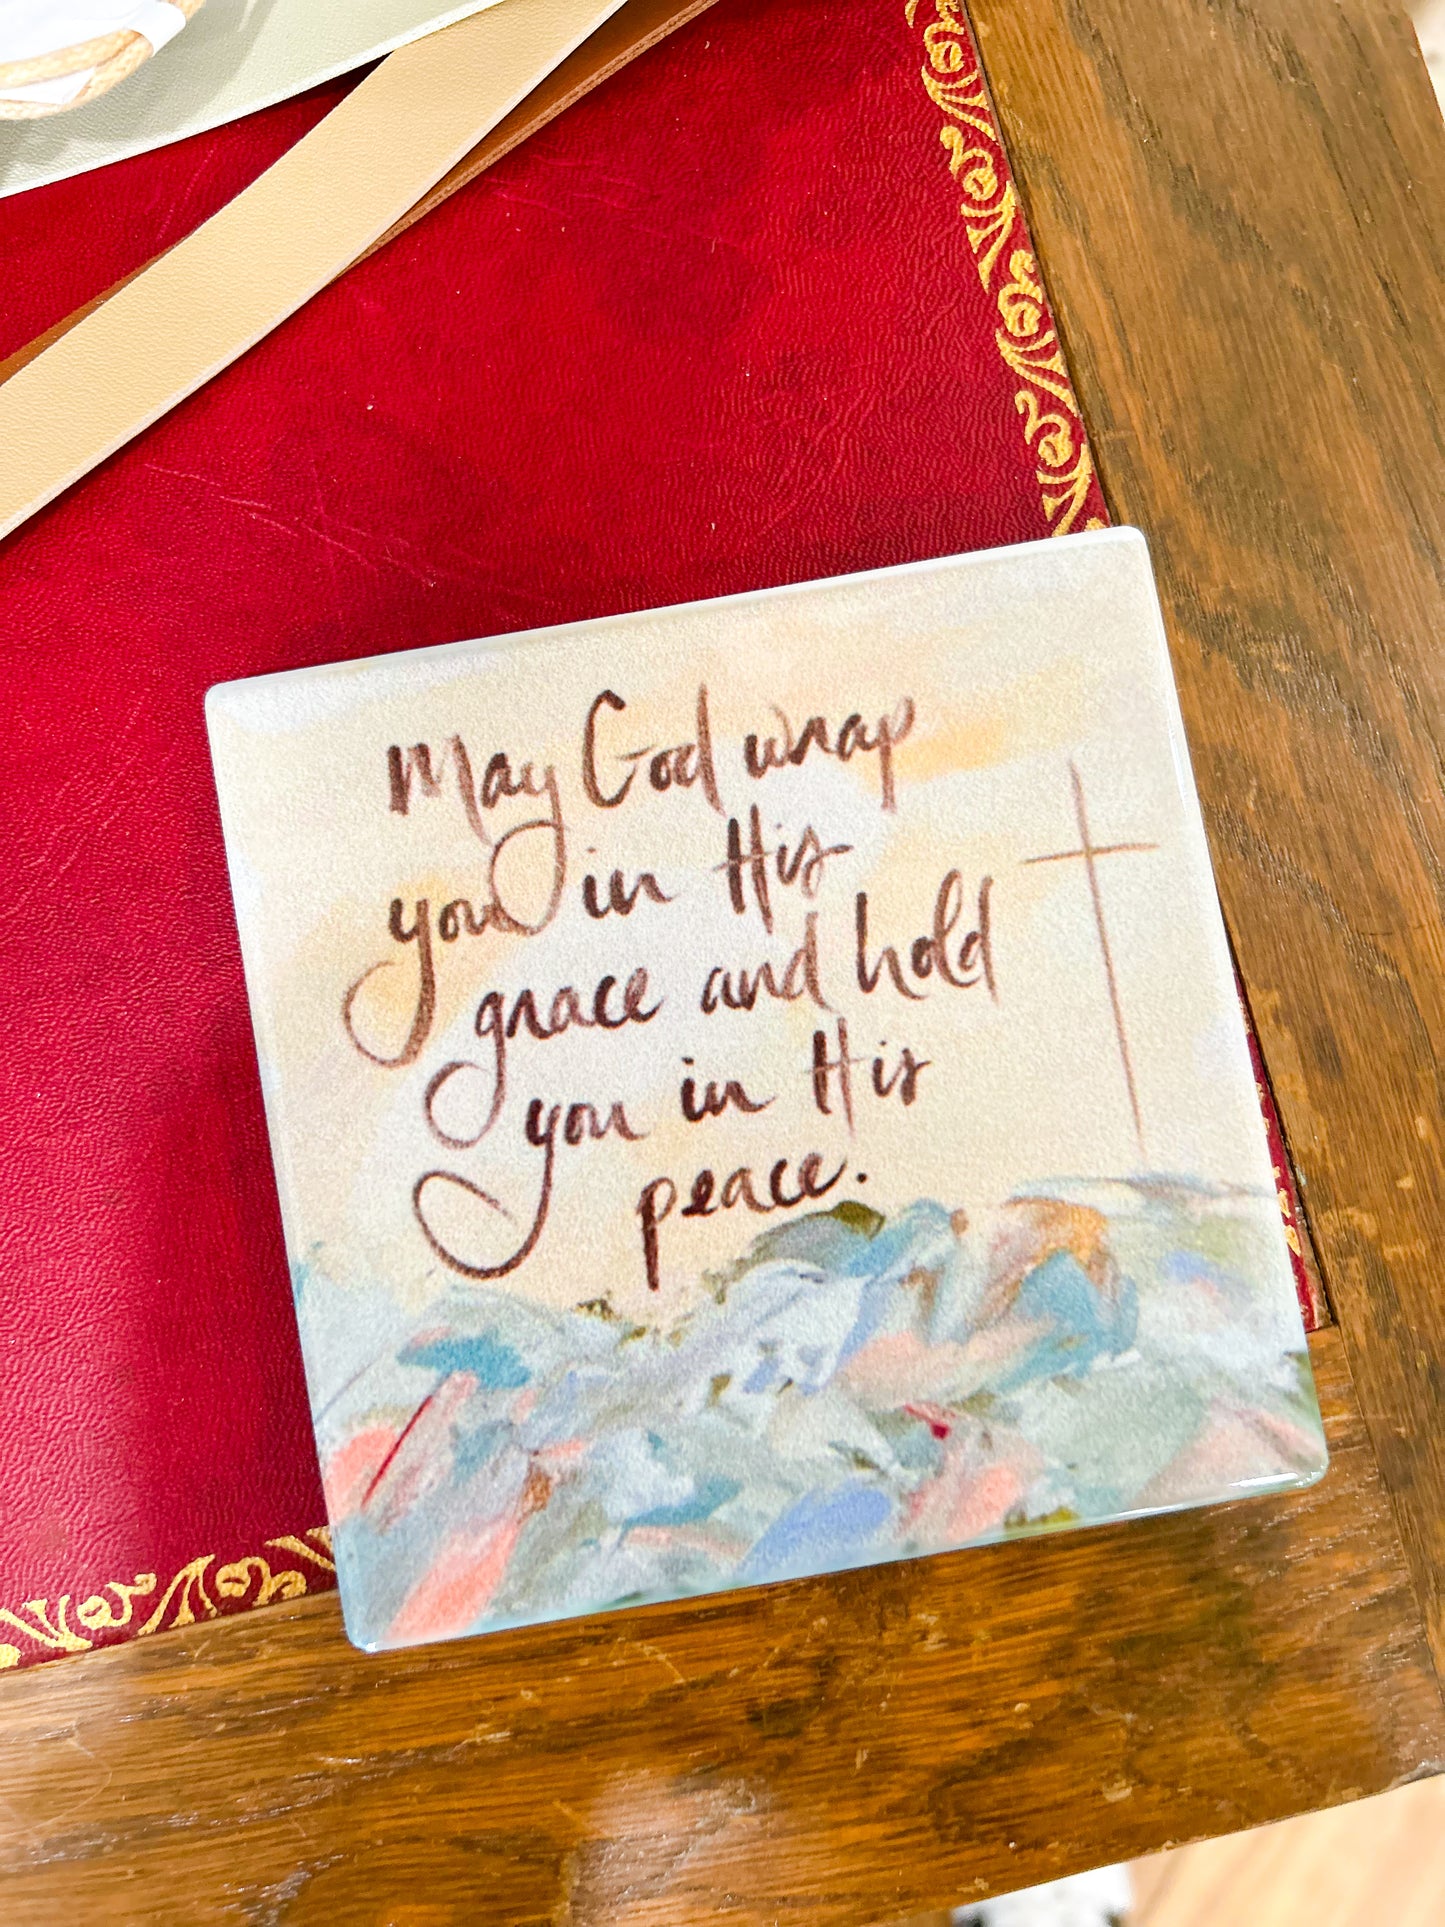 May God wrap
you in His
grace and hold
you in His
peace.